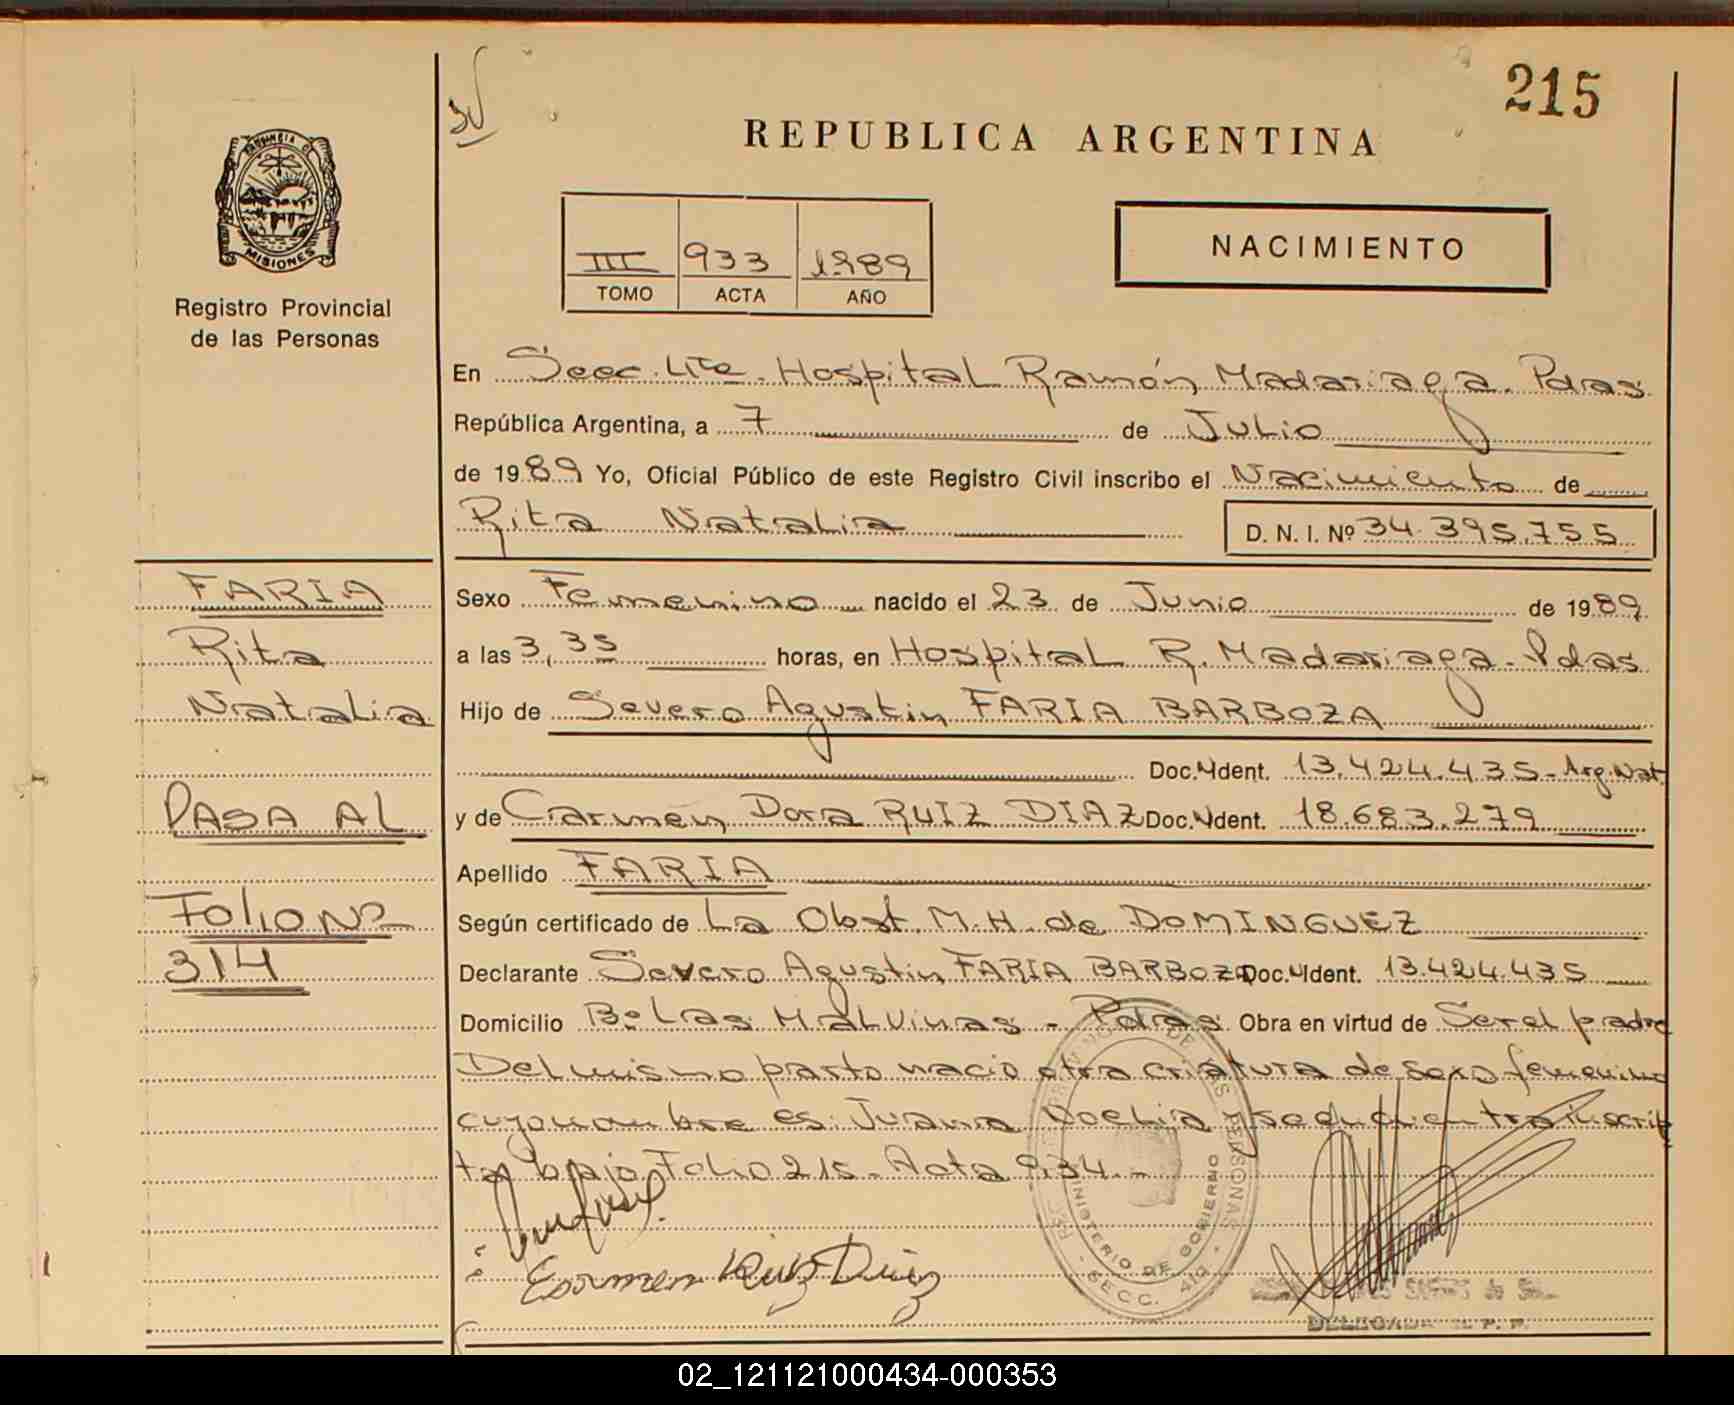 215
REPUBLICA ARGENTINA
PROVINCIA DE
MISIONES
Registro Provincial
de las Personas
III 933 1989
TOMO ACTA AÑO
NACIMIENTO
En Secc. 4ta. Hospital Ramón Madariaga. Pdas
República Argentina, a 7 de Julio
de 1989 Yo, Oficial Público de este Registro Civil inscribo el Nacimiento de
Rita Natalia
D. N. I. Nº 34.395.755
FARIA
Rita
Natalia
PASA AL
Folio Nº
314
Sexo Femenino nacido el 23 de Junio de 1989
a las 3,35 horas, en Hospital R. Madariaga - Pdas
Hijo de Severo Agustin FARIA BARBOZA
Doc. Ident. 13.424.435 - Arg. Nat.
y de Carmen Dora RUIZ DIAZ Doc. Ident. 18.683.279
Apellido FARIA
Según certificado de La Obst. M. H. de DOMINGUEZ
Declarante Severo Agustin FARIA BARBOZA Doc. Ident. 13.424.435
Domicilio Bº Las Malvinas - Pdas Obra en virtud de Ser el padre
Del mismo parto nació otra criatura de sexo femenino
cuyo nombre es: Juana Noelia se encuentra inscrip
ta bajo Folio 215 - Acta 934. -
DE LAS PERSONAS
MINISTERIO DE GOBIERNO
SECC. 4ta
Carmen Ruiz Diaz
DELEGADA R. P. P.
02_121121000434-000353